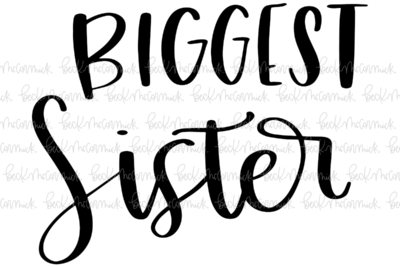 BIGGEST
Sister